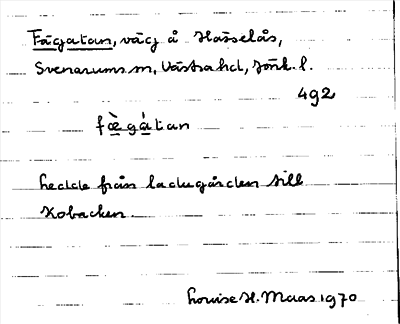 Fägatan, väg å Hässelås,
Svenarums sn, Västra hd, Jönk. l.
492
fæ̀gátan
ledde från ladugården till
Kobacken.
Louise H. Maas 1970